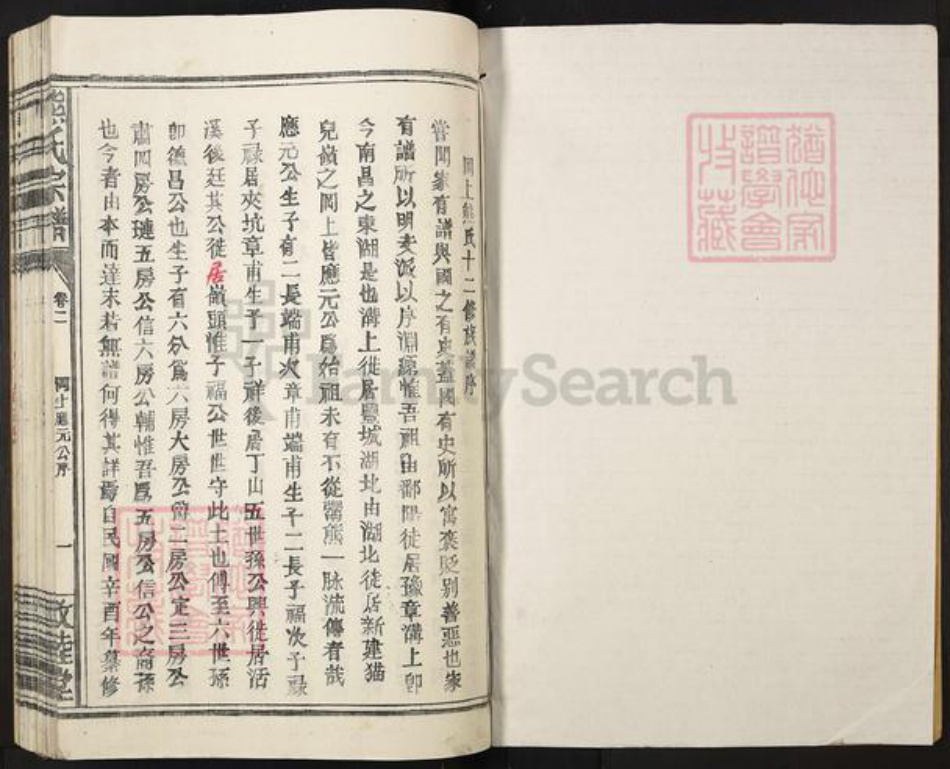 岡上熊氏十二修族譜序
嘗聞家有譜與國之有史蓋國有史所以寓褒貶別善惡也家
有譜所以明支派以序淵源惟吾祖由鄱陽徙居豫章溝上卽
今南昌之東湖是也溝上徙居豐城湖北由湖北徙居新建猫
兒嶺之岡上皆應元公爲始祖未有不從鬻熊一脉流傳者哉
應元公生子有二長端甫次章甫端甫生子二長子福次子祿
子祿居夾坑章甫生子一子祥後居丁山五世孫公興徙居活
溪後廷其公徙居嶺頭惟子福公世世守此土也傳至六世孫
卽德昌公也生子有六分爲六房大房公爵二房公定三房公
肅四房公璉五房公信六房公輔惟吾爲五房公信公之裔孫
也今者由本而達末若無譜何得其詳焉自民國辛酉年纂修
熊氏宗譜
卷二
岡上應元公序
一
敦睦堂
譜學會
收藏
FamilySearch